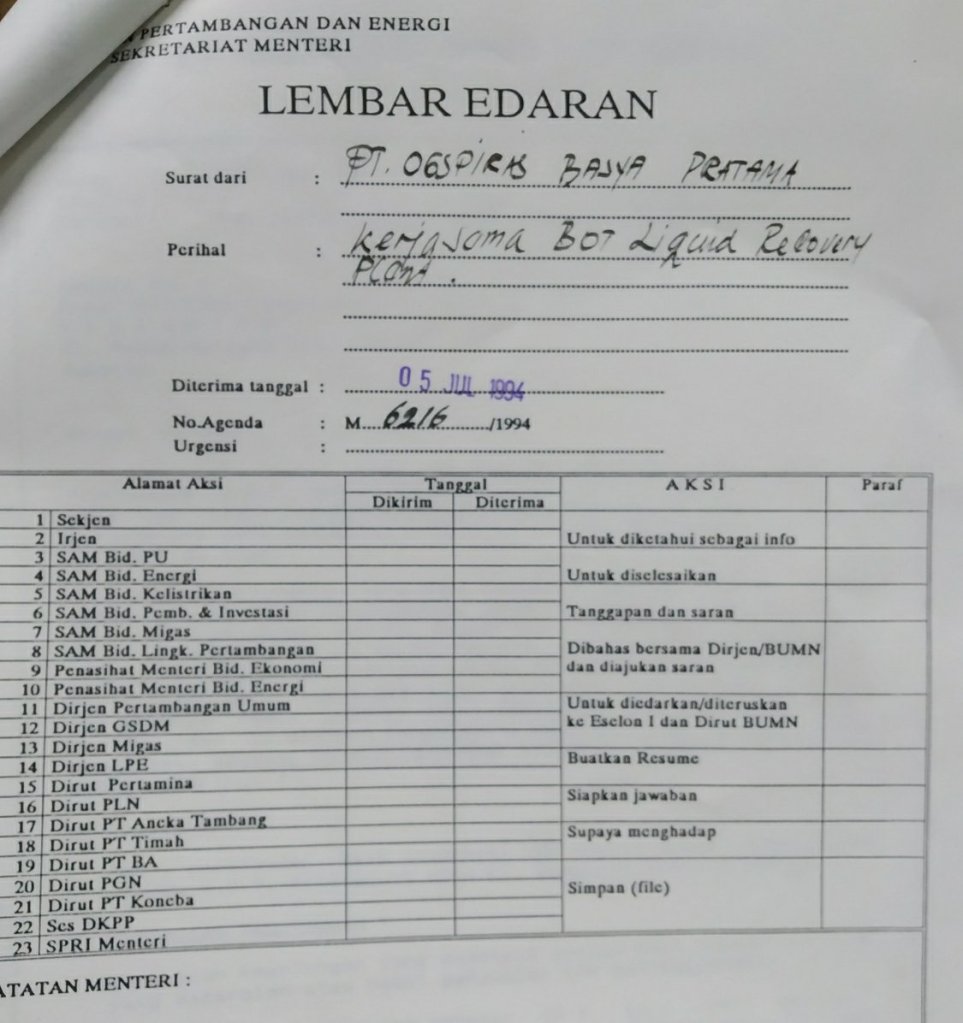 PERTAMBANGAN DAN ENERGI
SEKRETARIAT MENTERI
LEMBAR EDARAN
Surat dari : PT. OGSPIRAS BASYA PRATAMA
Perihal : Kerjasama BOT Liquid Recovery
Plant .
Diterima tanggal : 05 JUL 1994
No.Agenda : M....6216........../1994
Urgensi :
Alamat Aksi Tanggal AKSI Paraf
Dikirim Diterima
1 Sekjen
2 Irjen Untuk diketahui sebagai info
3 SAM Bid. PU
4 SAM Bid. Energi Untuk diselesaikan
5 SAM Bid. Kelistrikan
6 SAM Bid. Pemb. & Investasi Tanggapan dan saran
7 SAM Bid. Migas
8 SAM Bid. Lingk. Pertambangan Dibahas bersama Dirjen/BUMN
9 Penasihat Menteri Bid. Ekonomi dan diajukan saran
10 Penasihat Menteri Bid. Energi
11 Dirjen Pertambangan Umum Untuk diedarkan/diteruskan
12 Dirjen GSDM ke Eselon I dan Dirut BUMN
13 Dirjen Migas
14 Dirjen LPE Buatkan Resume
15 Dirut Pertamina
16 Dirut PLN Siapkan jawaban
17 Dirut PT Aneka Tambang
18 Dirut PT Timah Supaya menghadap
19 Dirut PT BA
20 Dirut PGN Simpan (file)
21 Dirut PT Koneba
22 Ses DKPP
23 SPRI Menteri
ATATAN MENTERI :